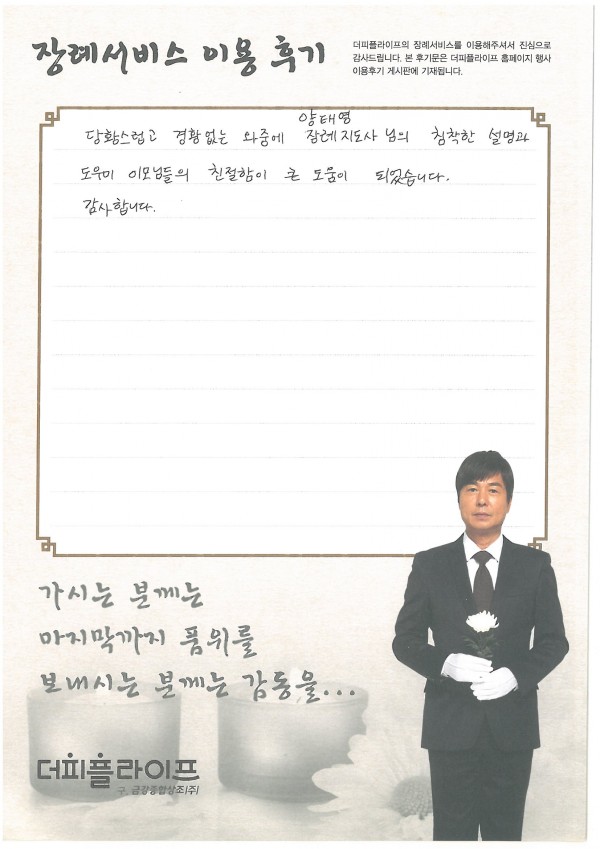 장례서비스 이용 후기
더피플라이프의 장례서비스를 이용해주셔서 진심으로
감사드립니다. 본 후기문은 더피플라이프 홈페이지 행사
이용후기 게시판에 기재됩니다.
양태영
당황스럽고 경황없는 와중에 장례지도사님의 침착한 설명과
도우미 이모님들의 친절함이 큰 도움이 되었습니다.
감사합니다.
가시는 분께는
마지막까지 품위를
보내시는 분께는 감동을...
더피플라이프
구. 금강종합상조(주)